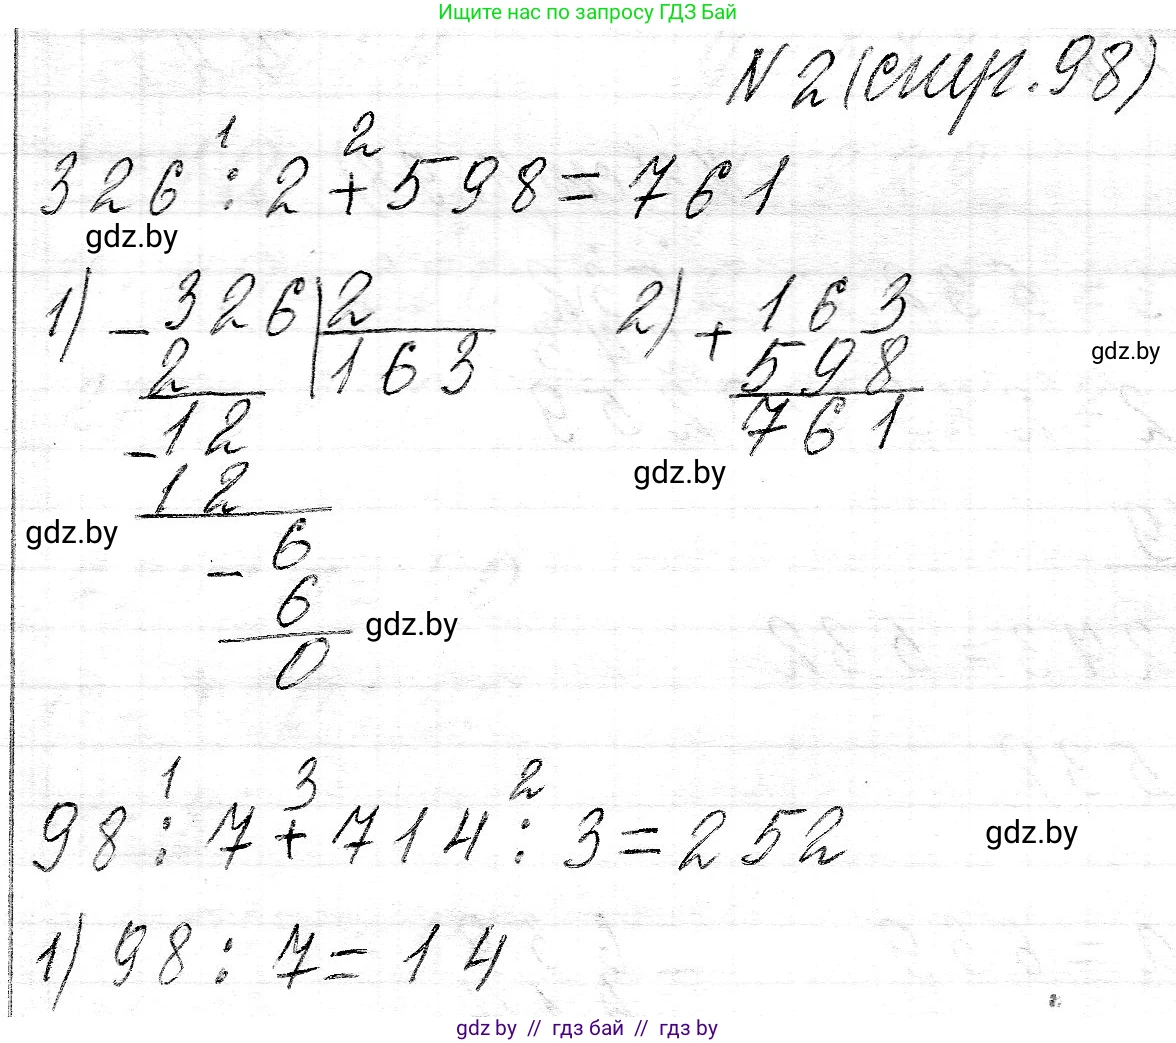 Ищите нас по запросу ГДЗ Бай
N 2 (стр. 98)
1 2
326 : 2 + 598 = 761
gdz.by
1) - 326 | 2 2) + 163
2 163 598
gdz.by
- 12 761
12 gdz.by
gdz.by
- 6
6
gdz.by
0
1 3 2
98 : 7 + 714 : 3 = 252
gdz.by
1) 98 : 7 = 14
gdz by // гдз бай // gdz by